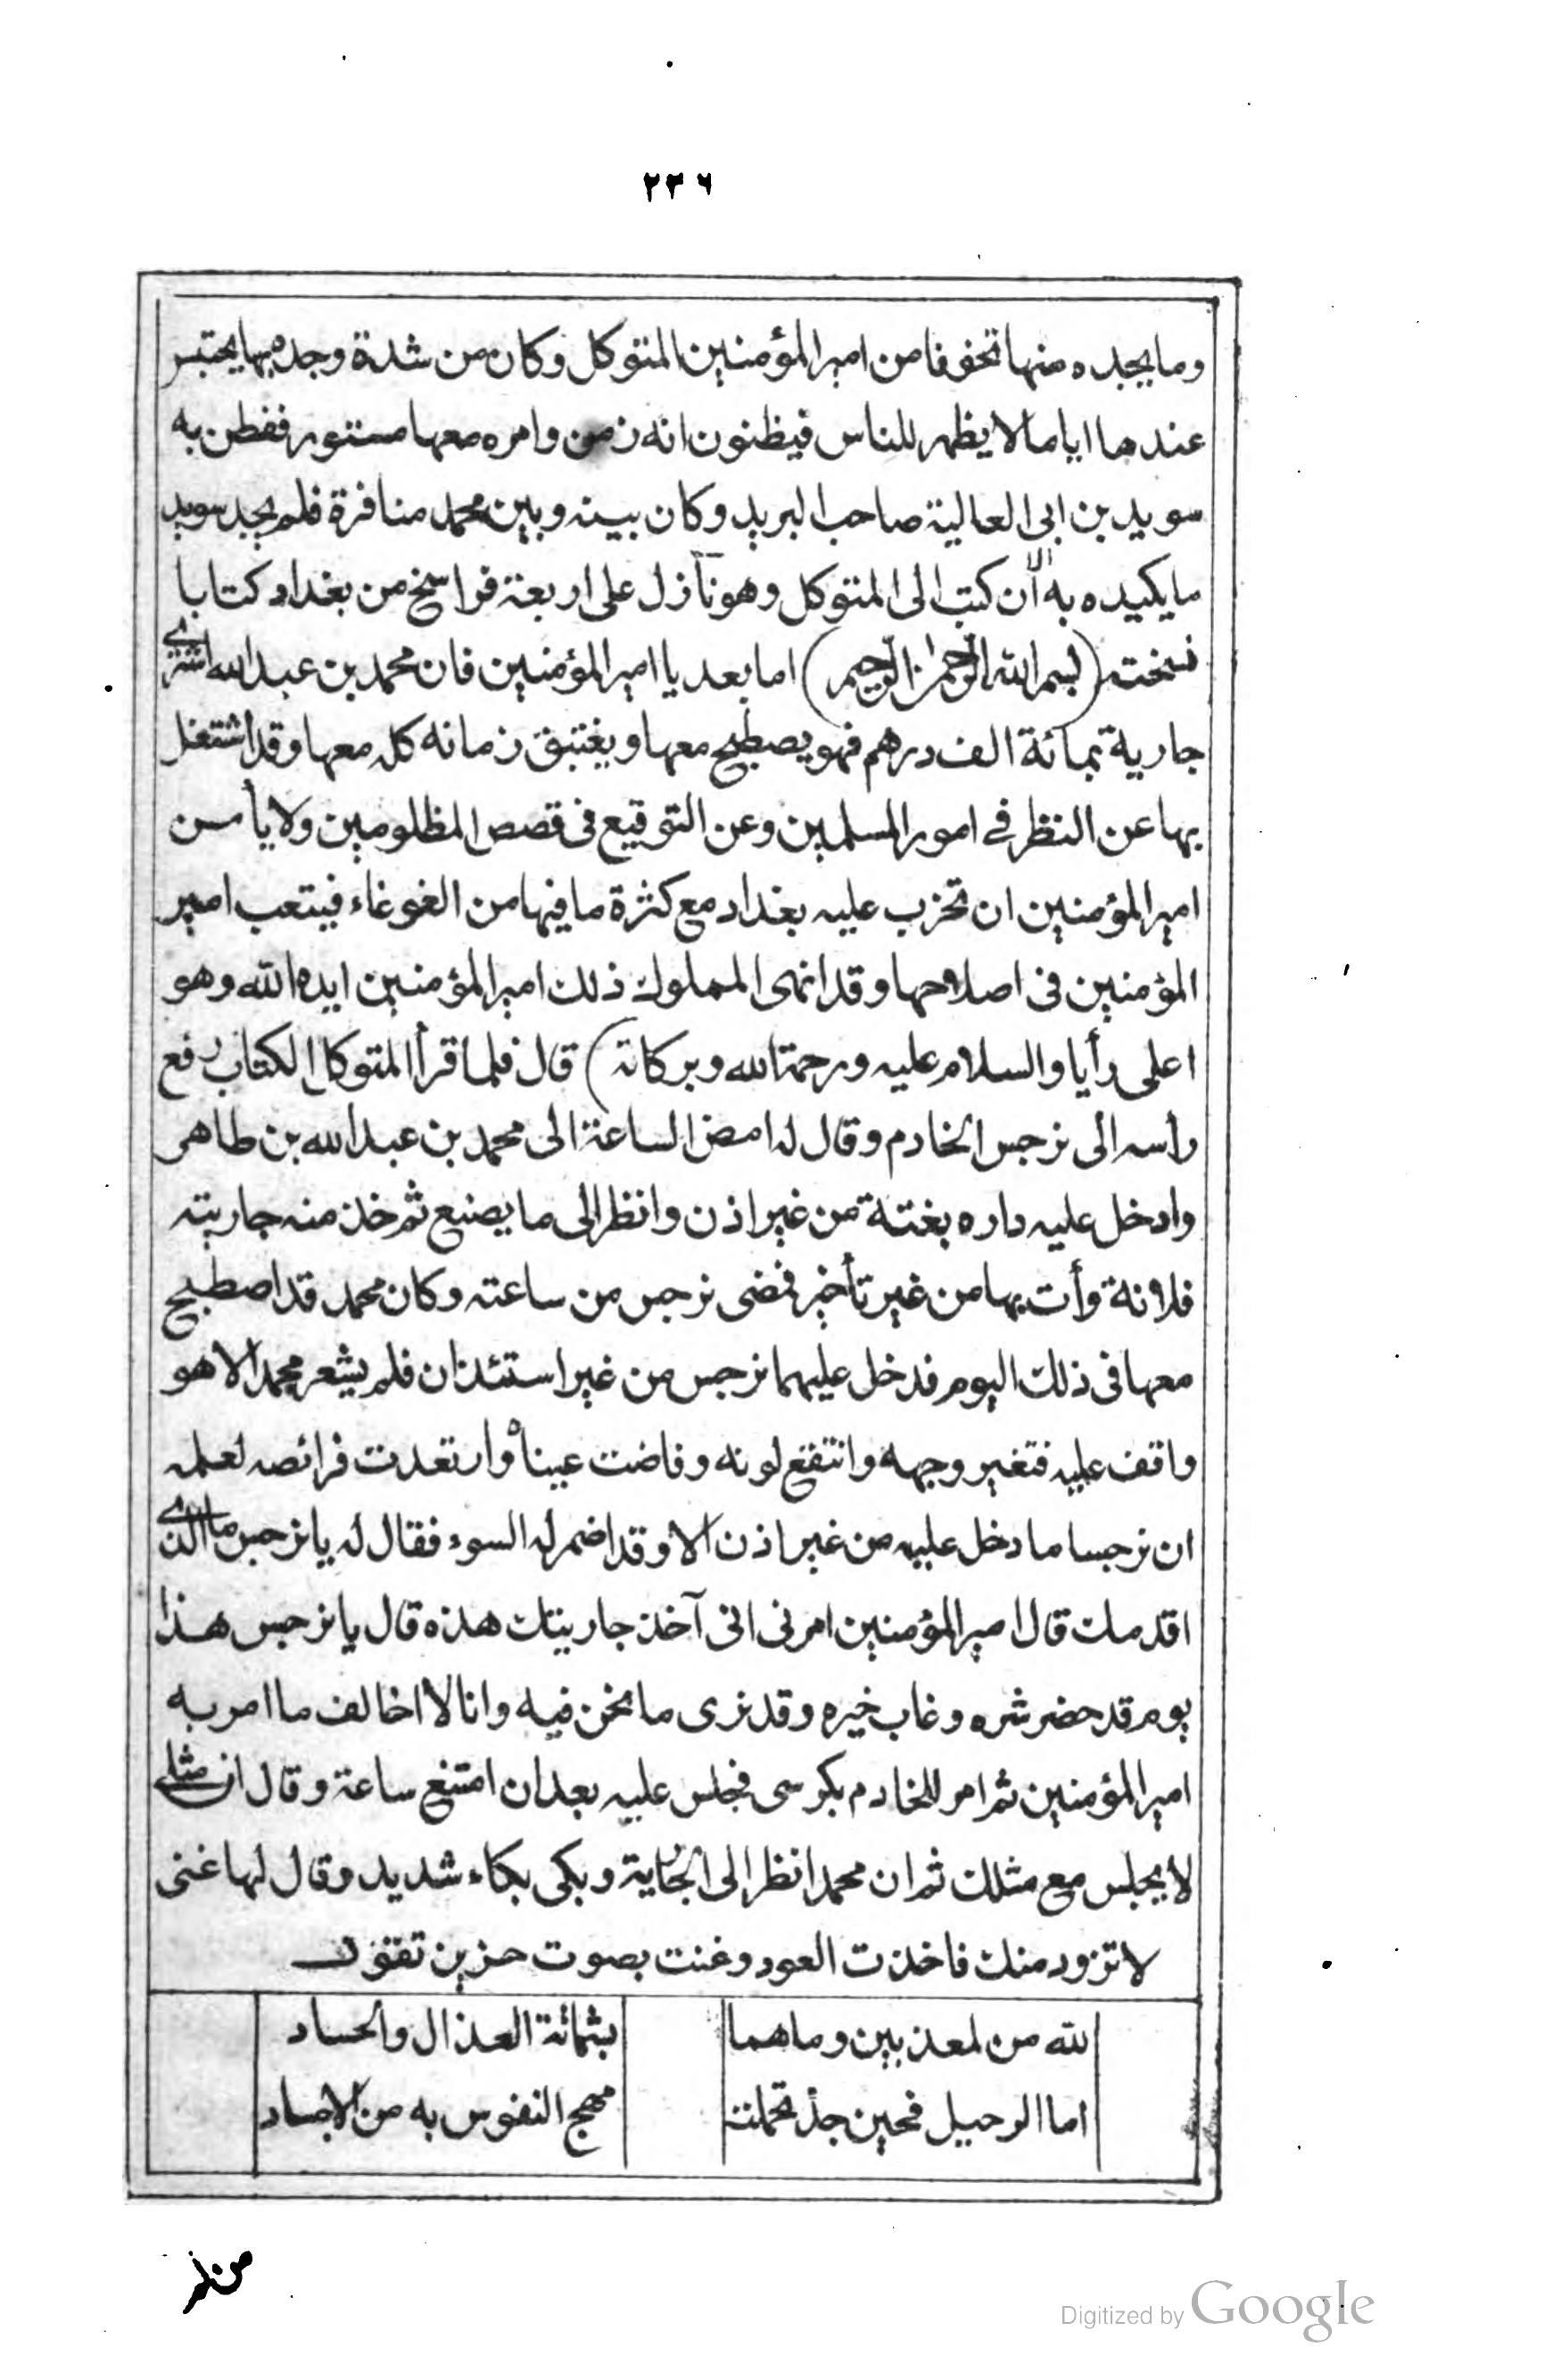 ٢٣٦
وما يجده منها تخوفا من امير المؤمنين المتوكل وكان من شدة وجده بها يحتبس
عندها اياما لا يظهر للناس فيظنون انه زمن وامره معها مستور ففطن به
سويد بن ابي العالية صاحب البريد وكان بينه وبين محمد منافرة فلم يجد سويد
ما يكيده به الا ان كتب الى المتوكل وهو نازل على اربعة فراسخ من بغداد كتابا
نسخته (بسم الله الرحمن الرحيم) اما بعد يا امير المؤمنين فان محمد بن عبد الله اشترى
جارية بمائة الف درهم فهو يصطبح معها ويغتبق زمانه كله معها وقد اشتغل
بها عن النظر في امور المسلمين وعن التوقيع في قصص المظلومين ولا يأمن
امير المؤمنين ان تخرب عليه بغداد مع كثرة ما فيها من الغوغاء فيتعب امير
المؤمنين في اصلاحها وقد انهى المملوك ذلك امير المؤمنين ايده الله وهو
اعلى رأيا والسلام عليه ورحمة الله وبركاته) قال فلما قرأ المتوكل الكتاب رفع
رأسه الى نرجس الخادم وقال له امض الساعة الى محمد بن عبد الله بن طاهر
وادخل عليه داره بغتة من غير اذن وانظر الى ما يصنع ثم خذ منه جاريته
فلانة وأت بها من غير تأخير فمضى نرجس من ساعته وكان محمد قد اصطبح
معها في ذلك اليوم فدخل عليهما نرجس من غير استئذان فلم يشعر محمد الا هو
واقف عليه فتغير وجهه وانتقع لونه وفاضت عيناه وارتعدت فرائصه لعلمه
ان نرجسا ما دخل عليه من غير اذن الا وقد اضمر له السوء فقال له يا نرجس ما الذى
اقدمك قال امير المؤمنين امرنى انى آخذ جاريتك هذه قال يا نرجس هذا
يوم قد حضر شره وغاب خيره وقد ترى ما نحن فيه وانا لا اخالف ما امر به
امير المؤمنين ثم امر للخادم بكرسى فجلس عليه بعد ان امتنع ساعة وقال ان مثلى
لا يجلس مع مثلك ثم ان محمدا نظر الى الجارية وبكى بكاء شديد وقال لها غنى
لا تزود منك فاخذت العود وغنت بصوت حزين تقول
لله من لمعذبين وما هما بشماتة العذال والحساد
اما الرحيل فحين جد تحملت مهج النفوس به من الاجساد
Digitized by Google